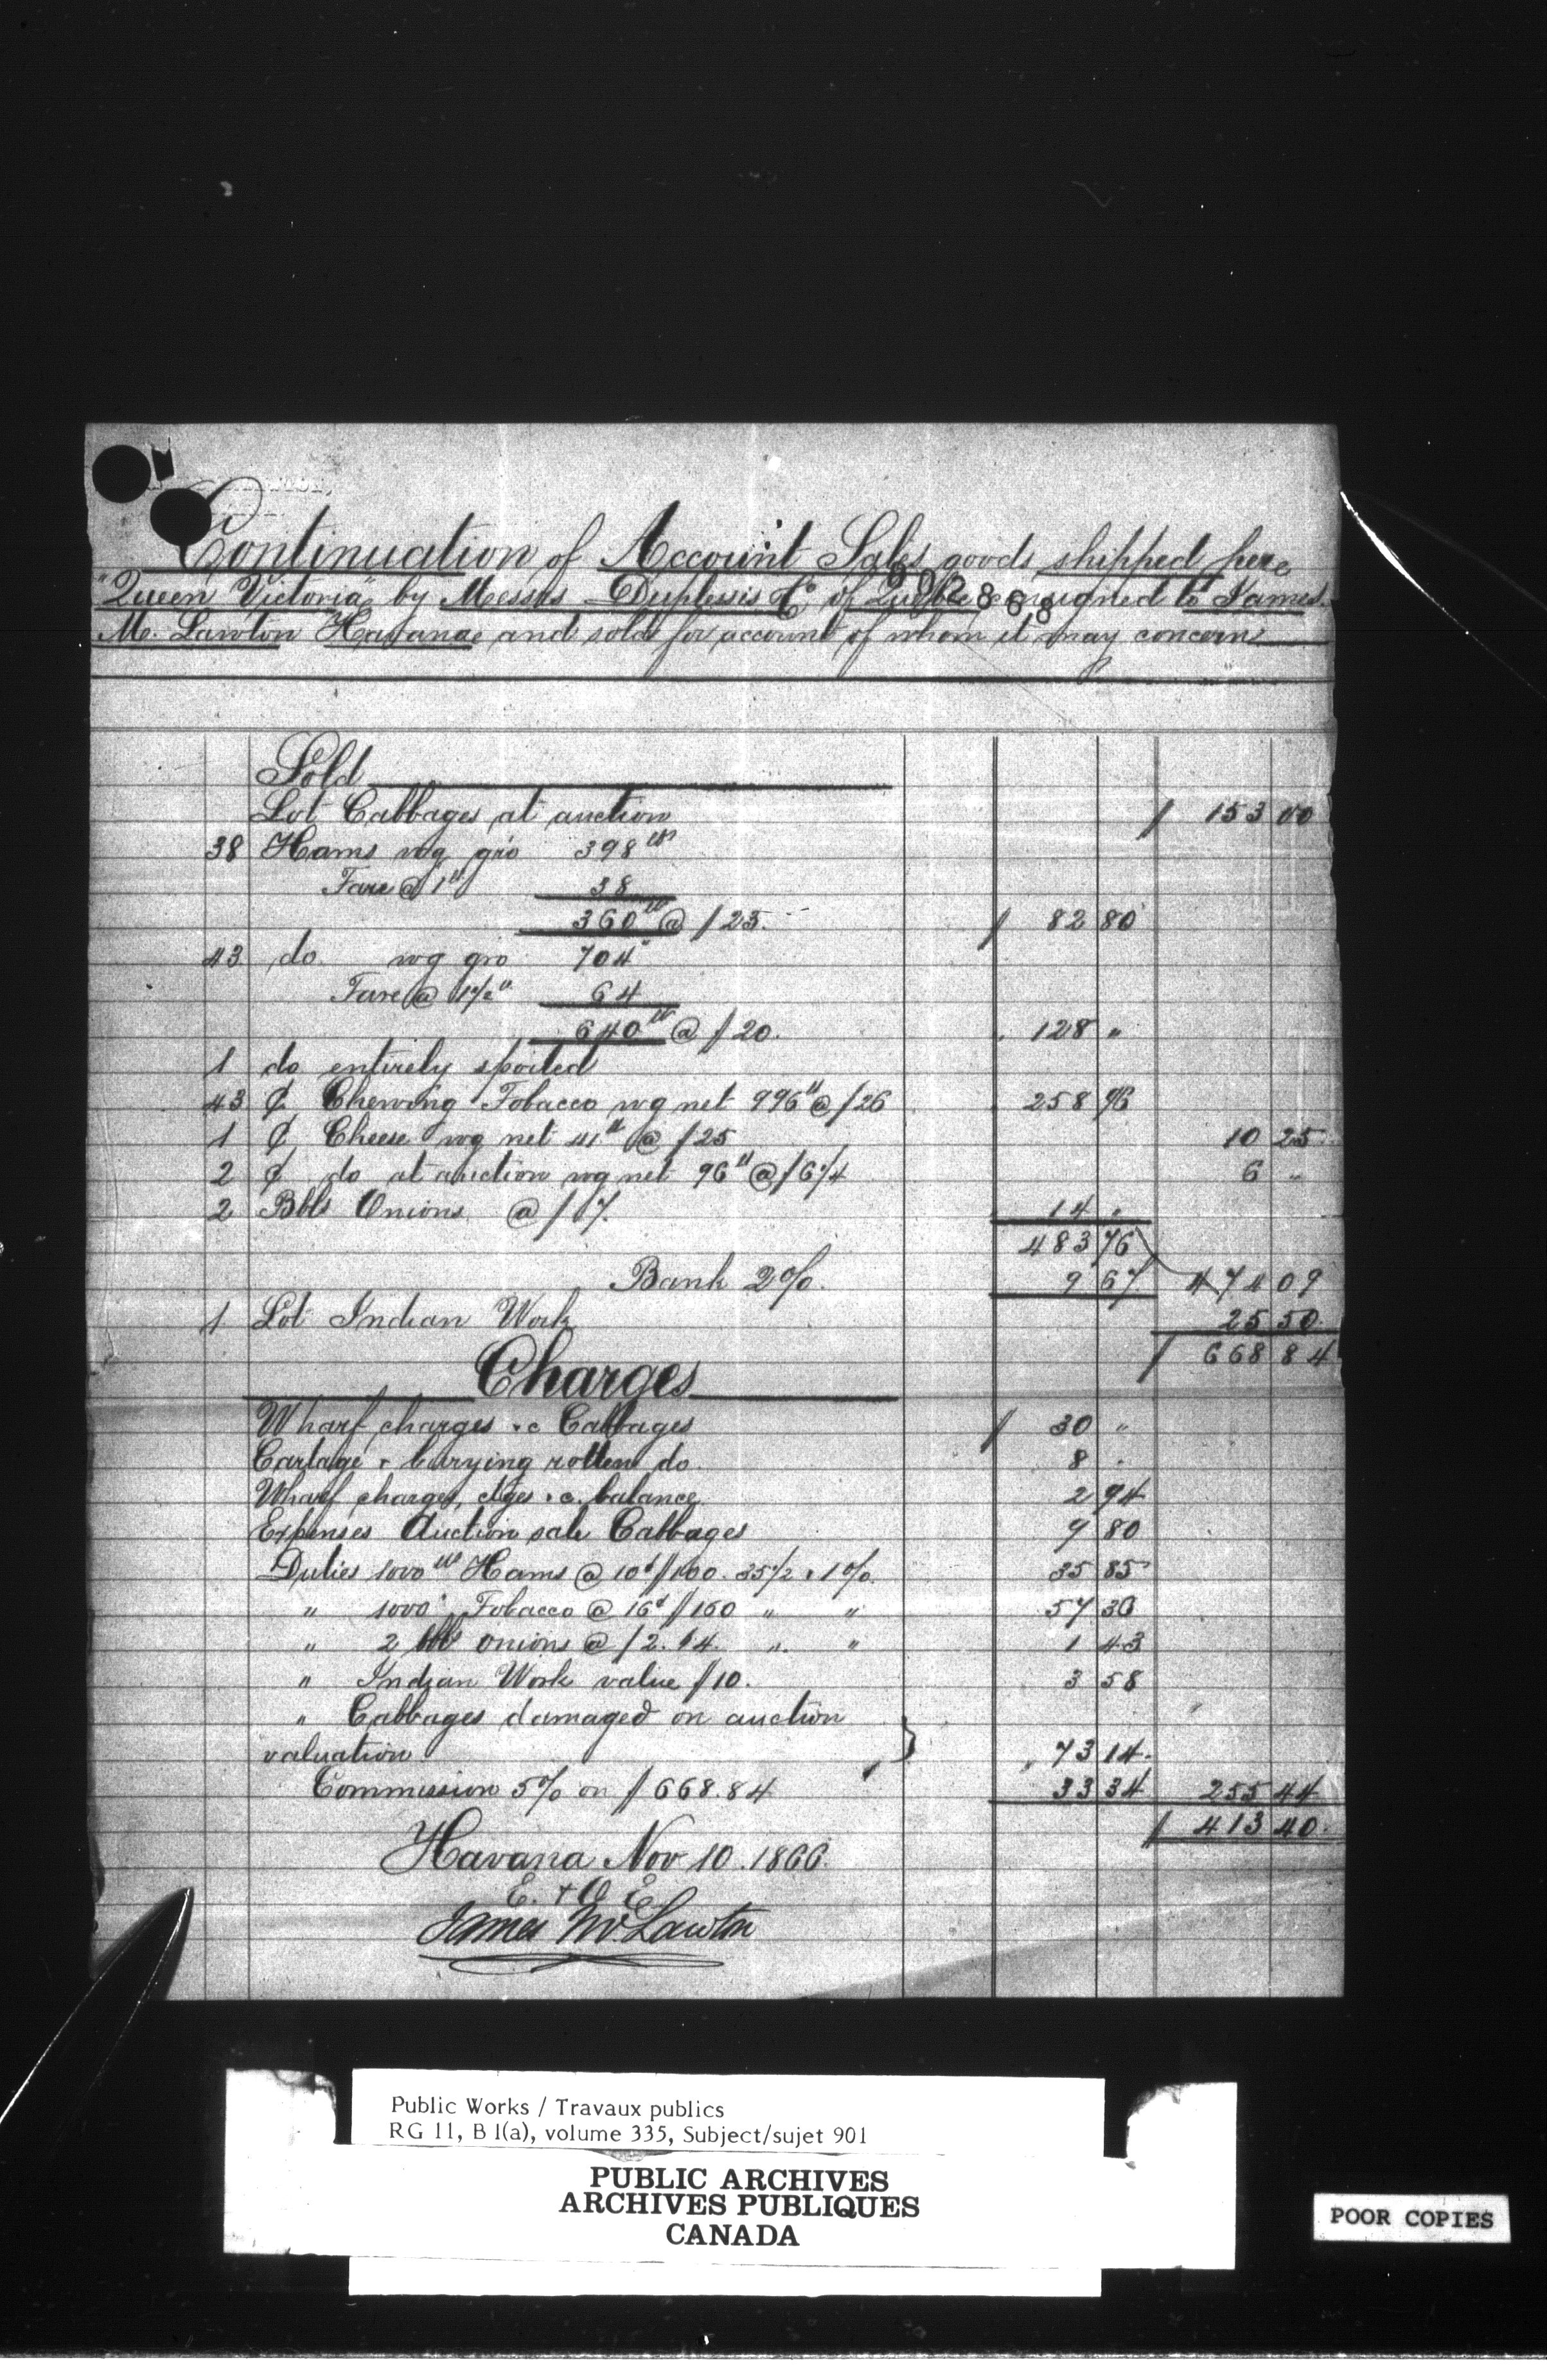 Continuation of Account Sales goods shipped pere
"Queen Victoria" by Messrs Duplessis & Co of Quebec consigned to James
M. Lawton Havana and sold for account of whom it may concern
Sold
Lot Cabbages at auction $ 153 00
38 Hams wg gro 398 lbs
Tare @ 1 lb 38
360 lb @ $ 23. $ 82 80
43 do. wg gro 704 "
Tare @ 1 1/2 " 64
640 lb @ $ 20. 128 "
1 do entirely spoiled
43 ₵ Chewing Tobacco wg net 996 lb @ $ 26 258 96
1 ₵ Cheese wg net 41 lb @ $ 25 10 25
2 ₵ do at auction wg net 96 lb @ $ 6 1/4 6 "
2 Bbls Onions @ $ 7. 14 "
483 76
Bank 2%. 9 67 474 09
1 Lot Indian Work 25 50
$ 668 84
Charges
Wharf charges &c Cabbages $ 30 "
Cartage & burying rotten do. 8 "
Wharf charges, ctges &c. balance 2 94
Expenses Auction sale Cabbages 9 80
Duties 1000 lbs Hams @ 10 $ 100. 35 1/2 & 1%. 35 85
" 1000 " Tobacco @ 16 $ 160 " " 57 30
" 2 bbls onions @ $ 2. 14. " " 1 43
" Indian Work value $ 10. 3 58
" Cabbages damaged on auction
valuation } 73 14
Commission 5% on $ 668.84 33 34 255 44
$ 413 40
Havana Nov 10. 1866.
E. & O E
James M Lawton
Public Works / Travaux publics
RG 11, B 1(a), volume 335, Subject/sujet 901
PUBLIC ARCHIVES
ARCHIVES PUBLIQUES
CANADA
POOR COPIES